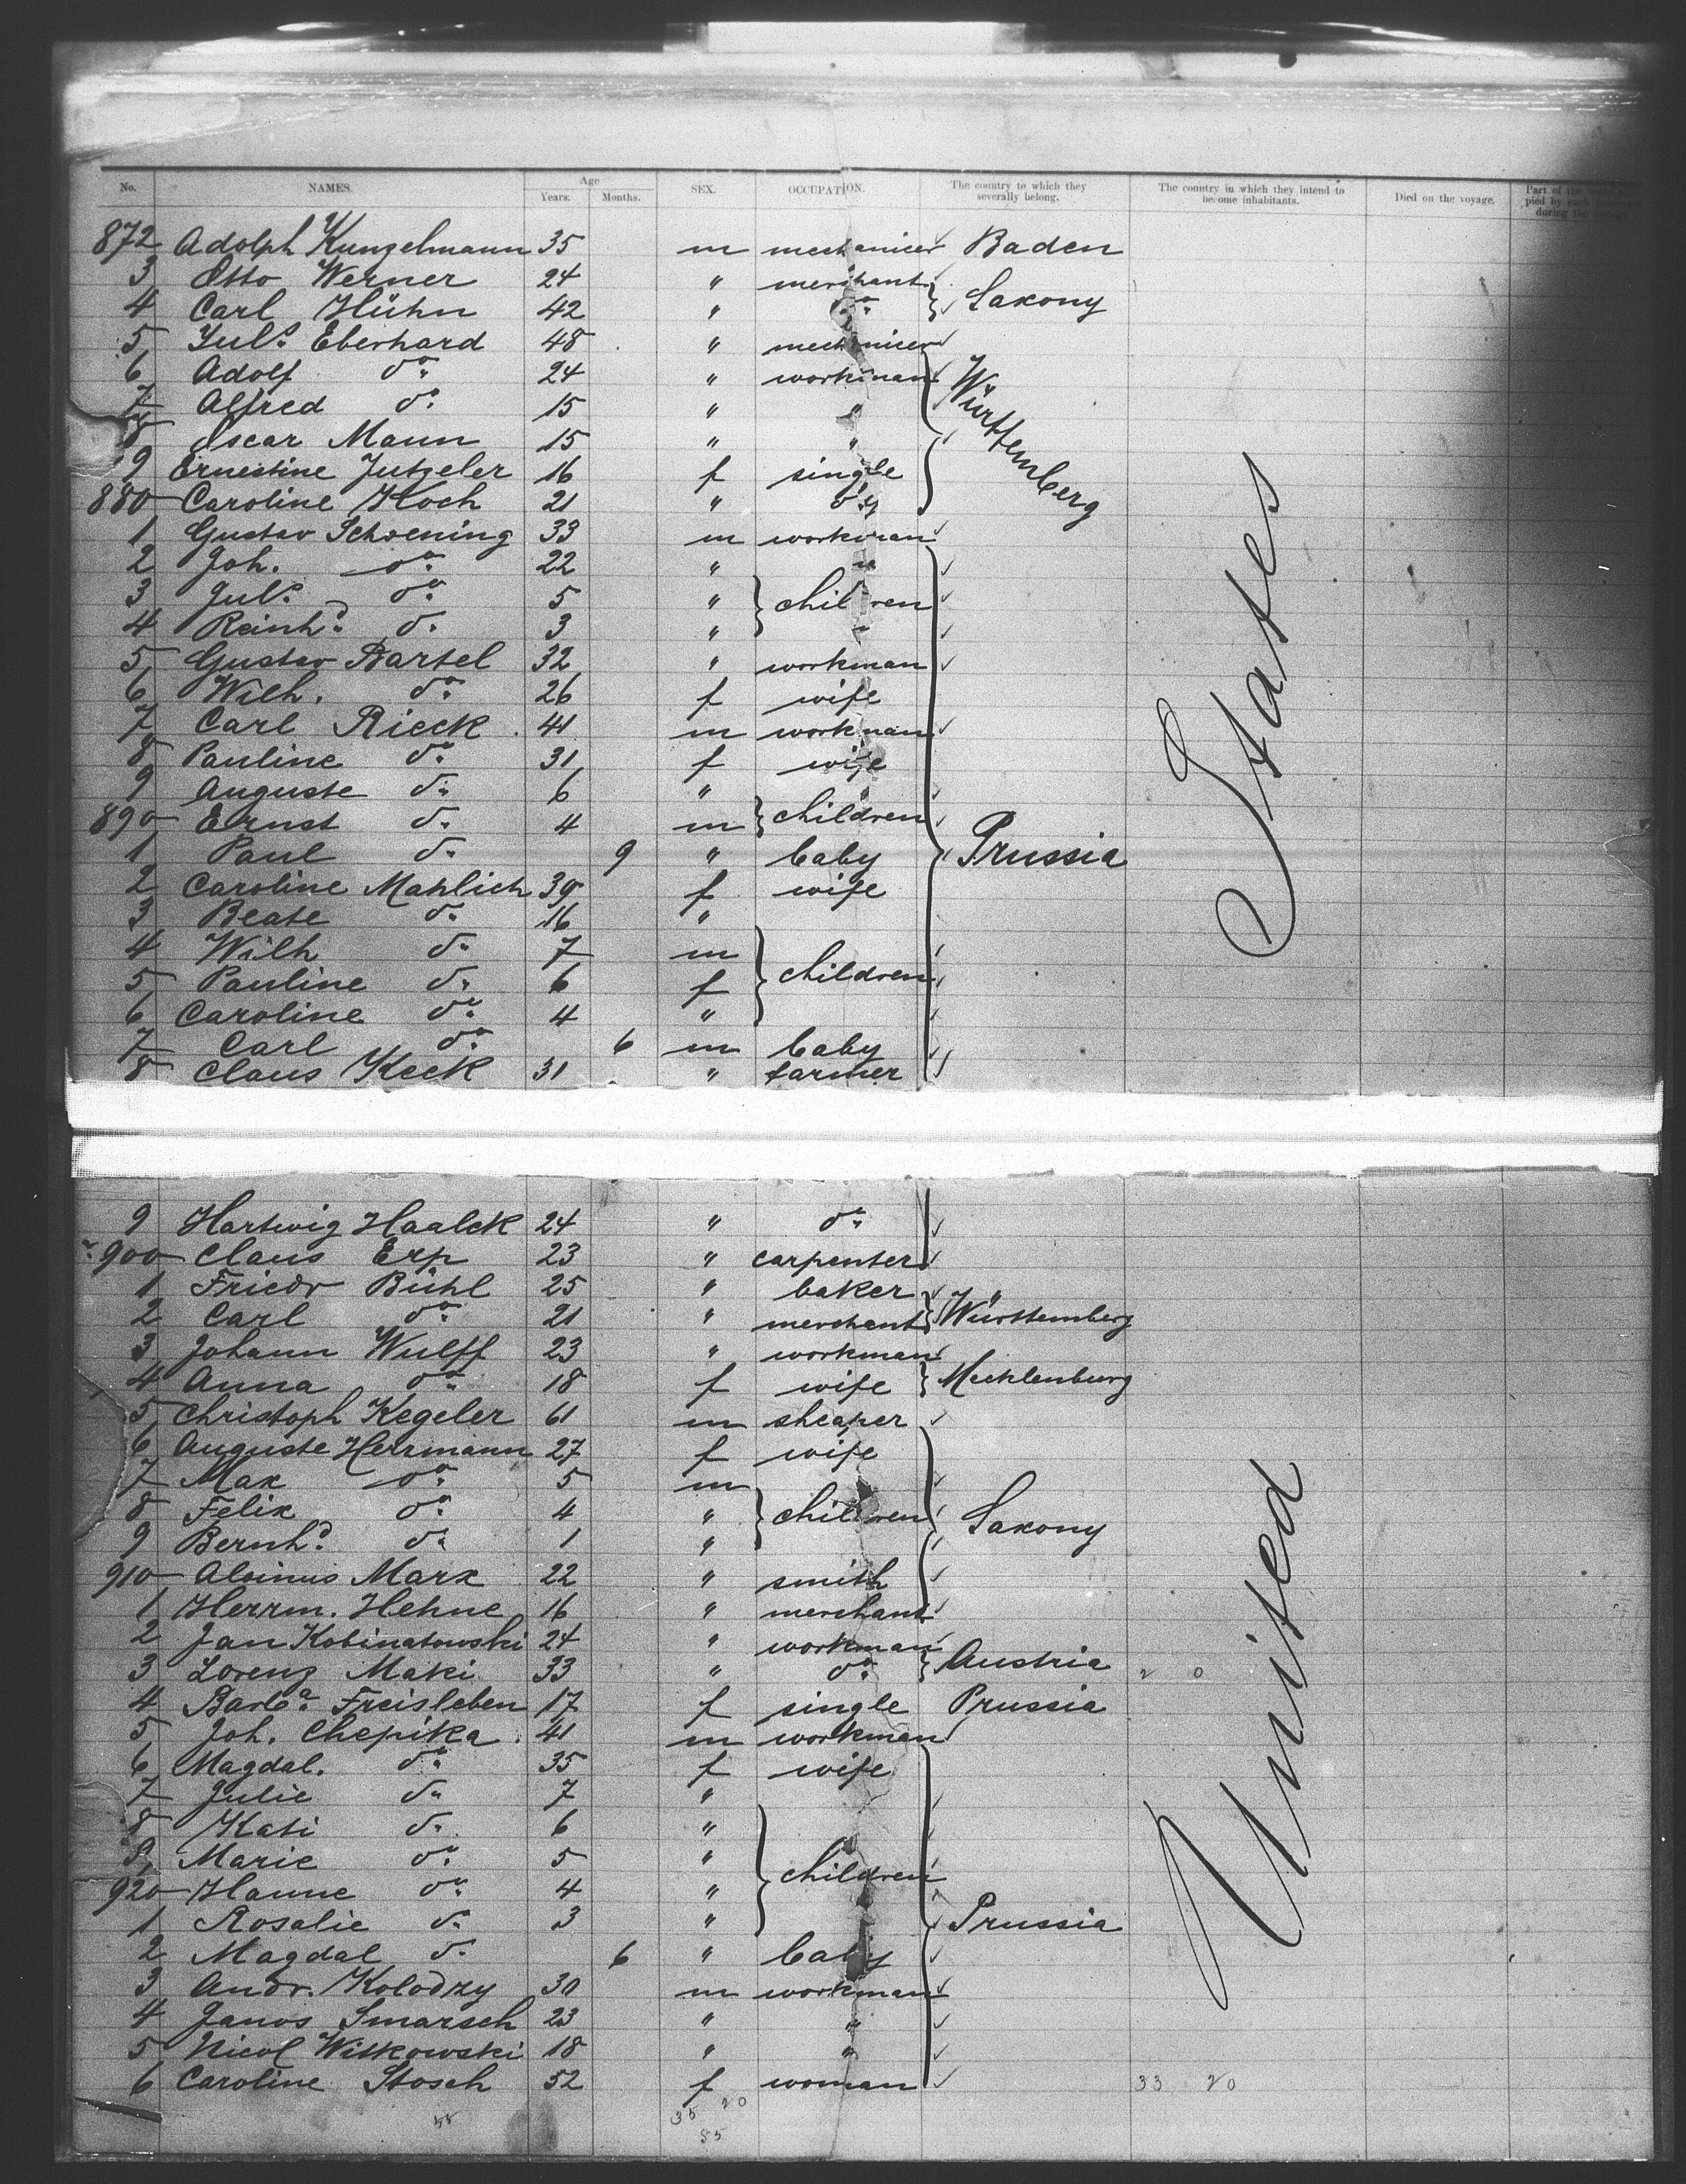 No. NAMES. Age Years. Months. SEX. OCCUPATION. The country to which they severally belong. The country in which they intend to become inhabitants. Died on the voyage. Part of the
872 Adolph Kunzelmann 35 m mechanicer Baden
3 Otto Werner 24 " merchant
4 Carl Hühn 42 " do } Saxony
5 Juls. Eberhard 48 " mechanicer
6 Adolf do. 24 " workman
7 Alfred do. 15 " "
8 Oscar Mann 15 " " Württemberg
9 Ernestine Jutzeler 16 f single
880 Caroline Koch 21 " do.
1 Gustav Schoening 33 m workman
2 Joh. do. 22 " "
3 Juls. do. 5 " } children
4 Reinhd. do. 3 "
5 Gustav Bartel 32 " workman
6 Wilh. do. 26 f wife
7 Carl Rieck 41 m workman
8 Pauline do. 31 f wife
9 Auguste do. 6 "
890 Ernst do. 4 m } children
1 Paul do. 9 " baby Prussia
2 Caroline Mahlich 39 f wife
3 Beate do. 16 "
4 Wilh do. 7 m
5 Pauline do. 6 f } children
6 Caroline do. 4 "
7 Carl do. 6 m baby
8 Claus Keck 31 " farmer
9 Hartwig Haalck 24 " do.
900 Claus Erp 23 " carpenter
1 Friedr Bühl 25 " baker
2 Carl do. 21 " merchant } Württemberg
3 Johann Wulff 23 " workman
4 Anna do. 18 f wife } Mecklenburg
5 Christoph Kegeler 61 m sheaper
6 Auguste Herrmann 27 f wife
7 Max do. 5 m
8 Felix do. 4 " } children Saxony
9 Bernhd. do. 1 "
910 Alvinus Marx 22 " smith
1 Herrm. Hehne 16 " merchant
2 Jan Kobinatowski 24 " workman
3 Lorenz Maki 33 " do. } Austria 2 0
4 Barba. Freisleben 17 f single Prussia
5 Joh. Chepika 41 m workman
6 Magdal. do. 35 f wife
7 Julie do. 7 "
8 Kati do. 6 "
9 Marie do. 5 "
920 Hanne do. 4 " } children
1 Rosalie do. 3 " Prussia
2 Magdal do. 6 " baby
3 Andr. Kolodzy 30 m workman
4 Janos Smarsch 23 " "
5 Nicol Witkowski 18 " "
6 Caroline Stosch 52 f woman 33 20
35 20
55
United States